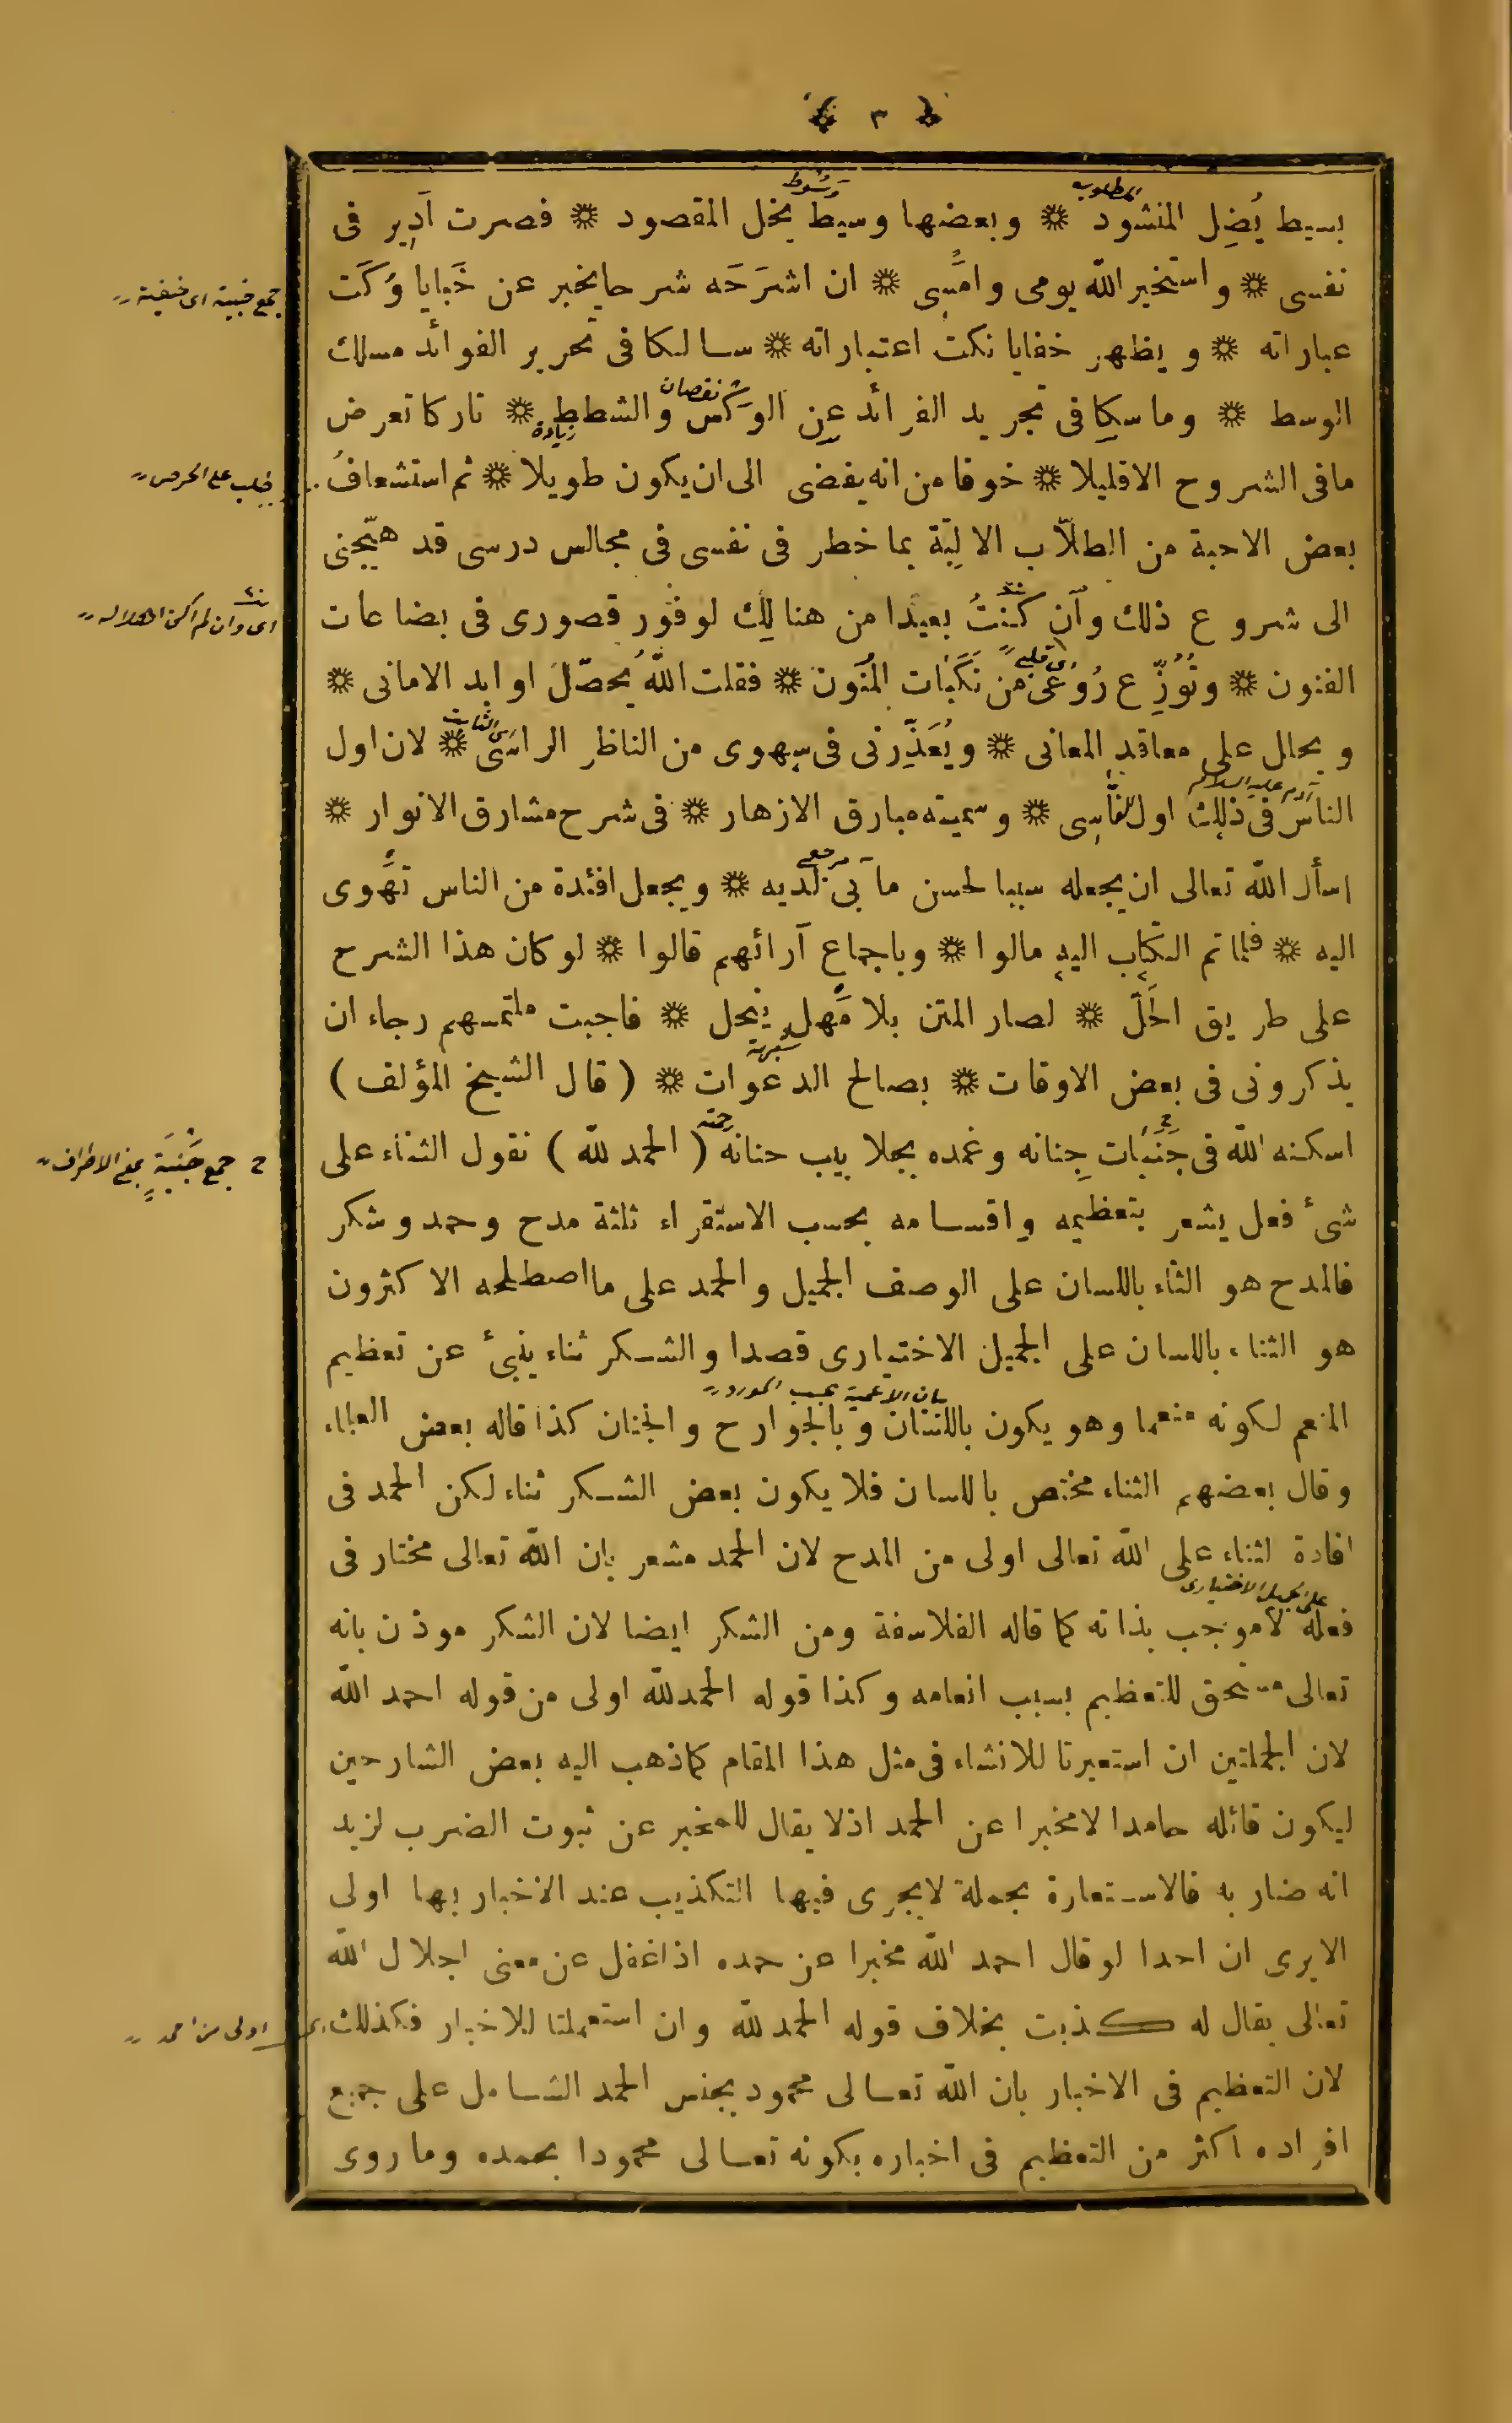 ﴿ ٣ ﴾
بسيط يُضِل المنشود ❊ وبعضها وسيط يخل المقصود ❊ فصرت اَدِير فى
نفسى ❊ واستخير الله يومى وامسى ❊ ان اشرَحَه شرحا يخبر عن خَبايا وُكَت
عباراته ❊ ويظهر خفايا نكت اعتباراته ❊ سالكا فى تحرير الفوائد مسلك
الوسط ❊ وماسكا فى تجريد الفرائد عن الوَكس والشطط ❊ تاركا تعرض
مافى الشروح الاقليلا ❊ خوفا من انه يفضى الى ان يكون طويلا ❊ ثم استشعاف
بعض الاحبة من الطلّاب الالِبّة بما خطر فى نفسى فى مجالس درسى قد هيّجنى
الى شروع ذلك وان كنتُ بعيدا من هنالك لوفور قصورى فى بضاعات
الفنون ❊ وتُوُزِّع رُوعى من نَكَبَات المَنون ❊ فقلت اللهُ يُحصّل اوابد الامانى ❊
ويحلل على معاقد المعانى ❊ ويُعَذِّرنى فى سهوى من الناظر الراسى ❊ لان اول
الناس فى ذلك اول الناسى ❊ وسميته مبارق الازهار ❊ فى شرح مشارق الانوار ❊
اسأل الله تعالى ان يجعله سببا لحسن مآبى لديه ❊ ويجعل افئدة من الناس تهوى
اليه ❊ فلما تم الكتاب اليه مالوا ❊ وباجماع آرائهم قالوا ❊ لوكان هذا الشرح
على طريق الحَلّ ❊ لصار المتن بلا مَهل ينحل ❊ فاجبت ملتمسهم رجاء ان
يذكرونى فى بعض الاوقات ❊ بصالح الدعوات ❊ ( قال الشيخ المؤلف )
اسكنه الله فى جَنَبَات جِنانه وغمده بجلابيب حنانه ( الحمد لله ) نقول الثناء على
شئ فعل يشعر بتعظيمه واقسامه بحسب الاستقراء ثلثة مدح وحمد وشكر
فالمدح هو الثناء باللسان على الوصف الجميل والحمد على مااصطلحه الاكثرون
هو الثناء باللسان على الجميل الاختيارى قصدا والشكر ثناء ينبئ عن تعظيم
المنعم لكونه منعما وهو يكون باللسان وبالجوارح والجنان كذا قاله بعض العلماء
وقال بعضهم الثناء مختص باللسان فلا يكون بعض الشكر ثناء لكن الحمد فى
افادة الثناء على الله تعالى اولى من المدح لان الحمد مشعر بان الله تعالى مختار فى
فعله لاموجب بذاته كما قاله الفلاسفة ومن الشكر ايضا لان الشكر موذن بانه
تعالى مستحق للتعظيم بسبب انعامه وكذا قوله الحمدلله اولى من قوله احمد الله
لان الجملتين ان استعيرتا للانشاء فى مثل هذا المقام كماذهب اليه بعض الشارحين
ليكون قائله حامدا لامخبرا عن الحمد اذلا يقال للمخبر عن ثبوت الضرب لزيد
انه ضارب فالاستعارة بجملة لايجرى فيها التكذيب عند الاخبار بها اولى
الايرى ان احدا لوقال احمد الله مخبرا عن حمده اذاغفل عن معنى اجلال الله
تعالى يقال له كذبت بخلاف قوله الحمد لله وان استعملتا للاخبار فكذلك
لان التعظيم فى الاخبار بان الله تعالى محمود بجنس الحمد الشامل على جميع
افراده اكثر من التعظيم فى اخباره بكونه تعالى محمودا بحمده وماروى
المطلوب
نقصان
زيادة
اى قلبى
اى الثابت
آدم عليه السلام
مرجعى
رحمته
بيان الاعمية بحسب المورد
على الجميل الاختيارى
جمع خبيئة اى خفية
اى وان لم اكن اهلا له
ح جمع جَنَبَةٍ بمعنى الاطراف
اولى من احمد